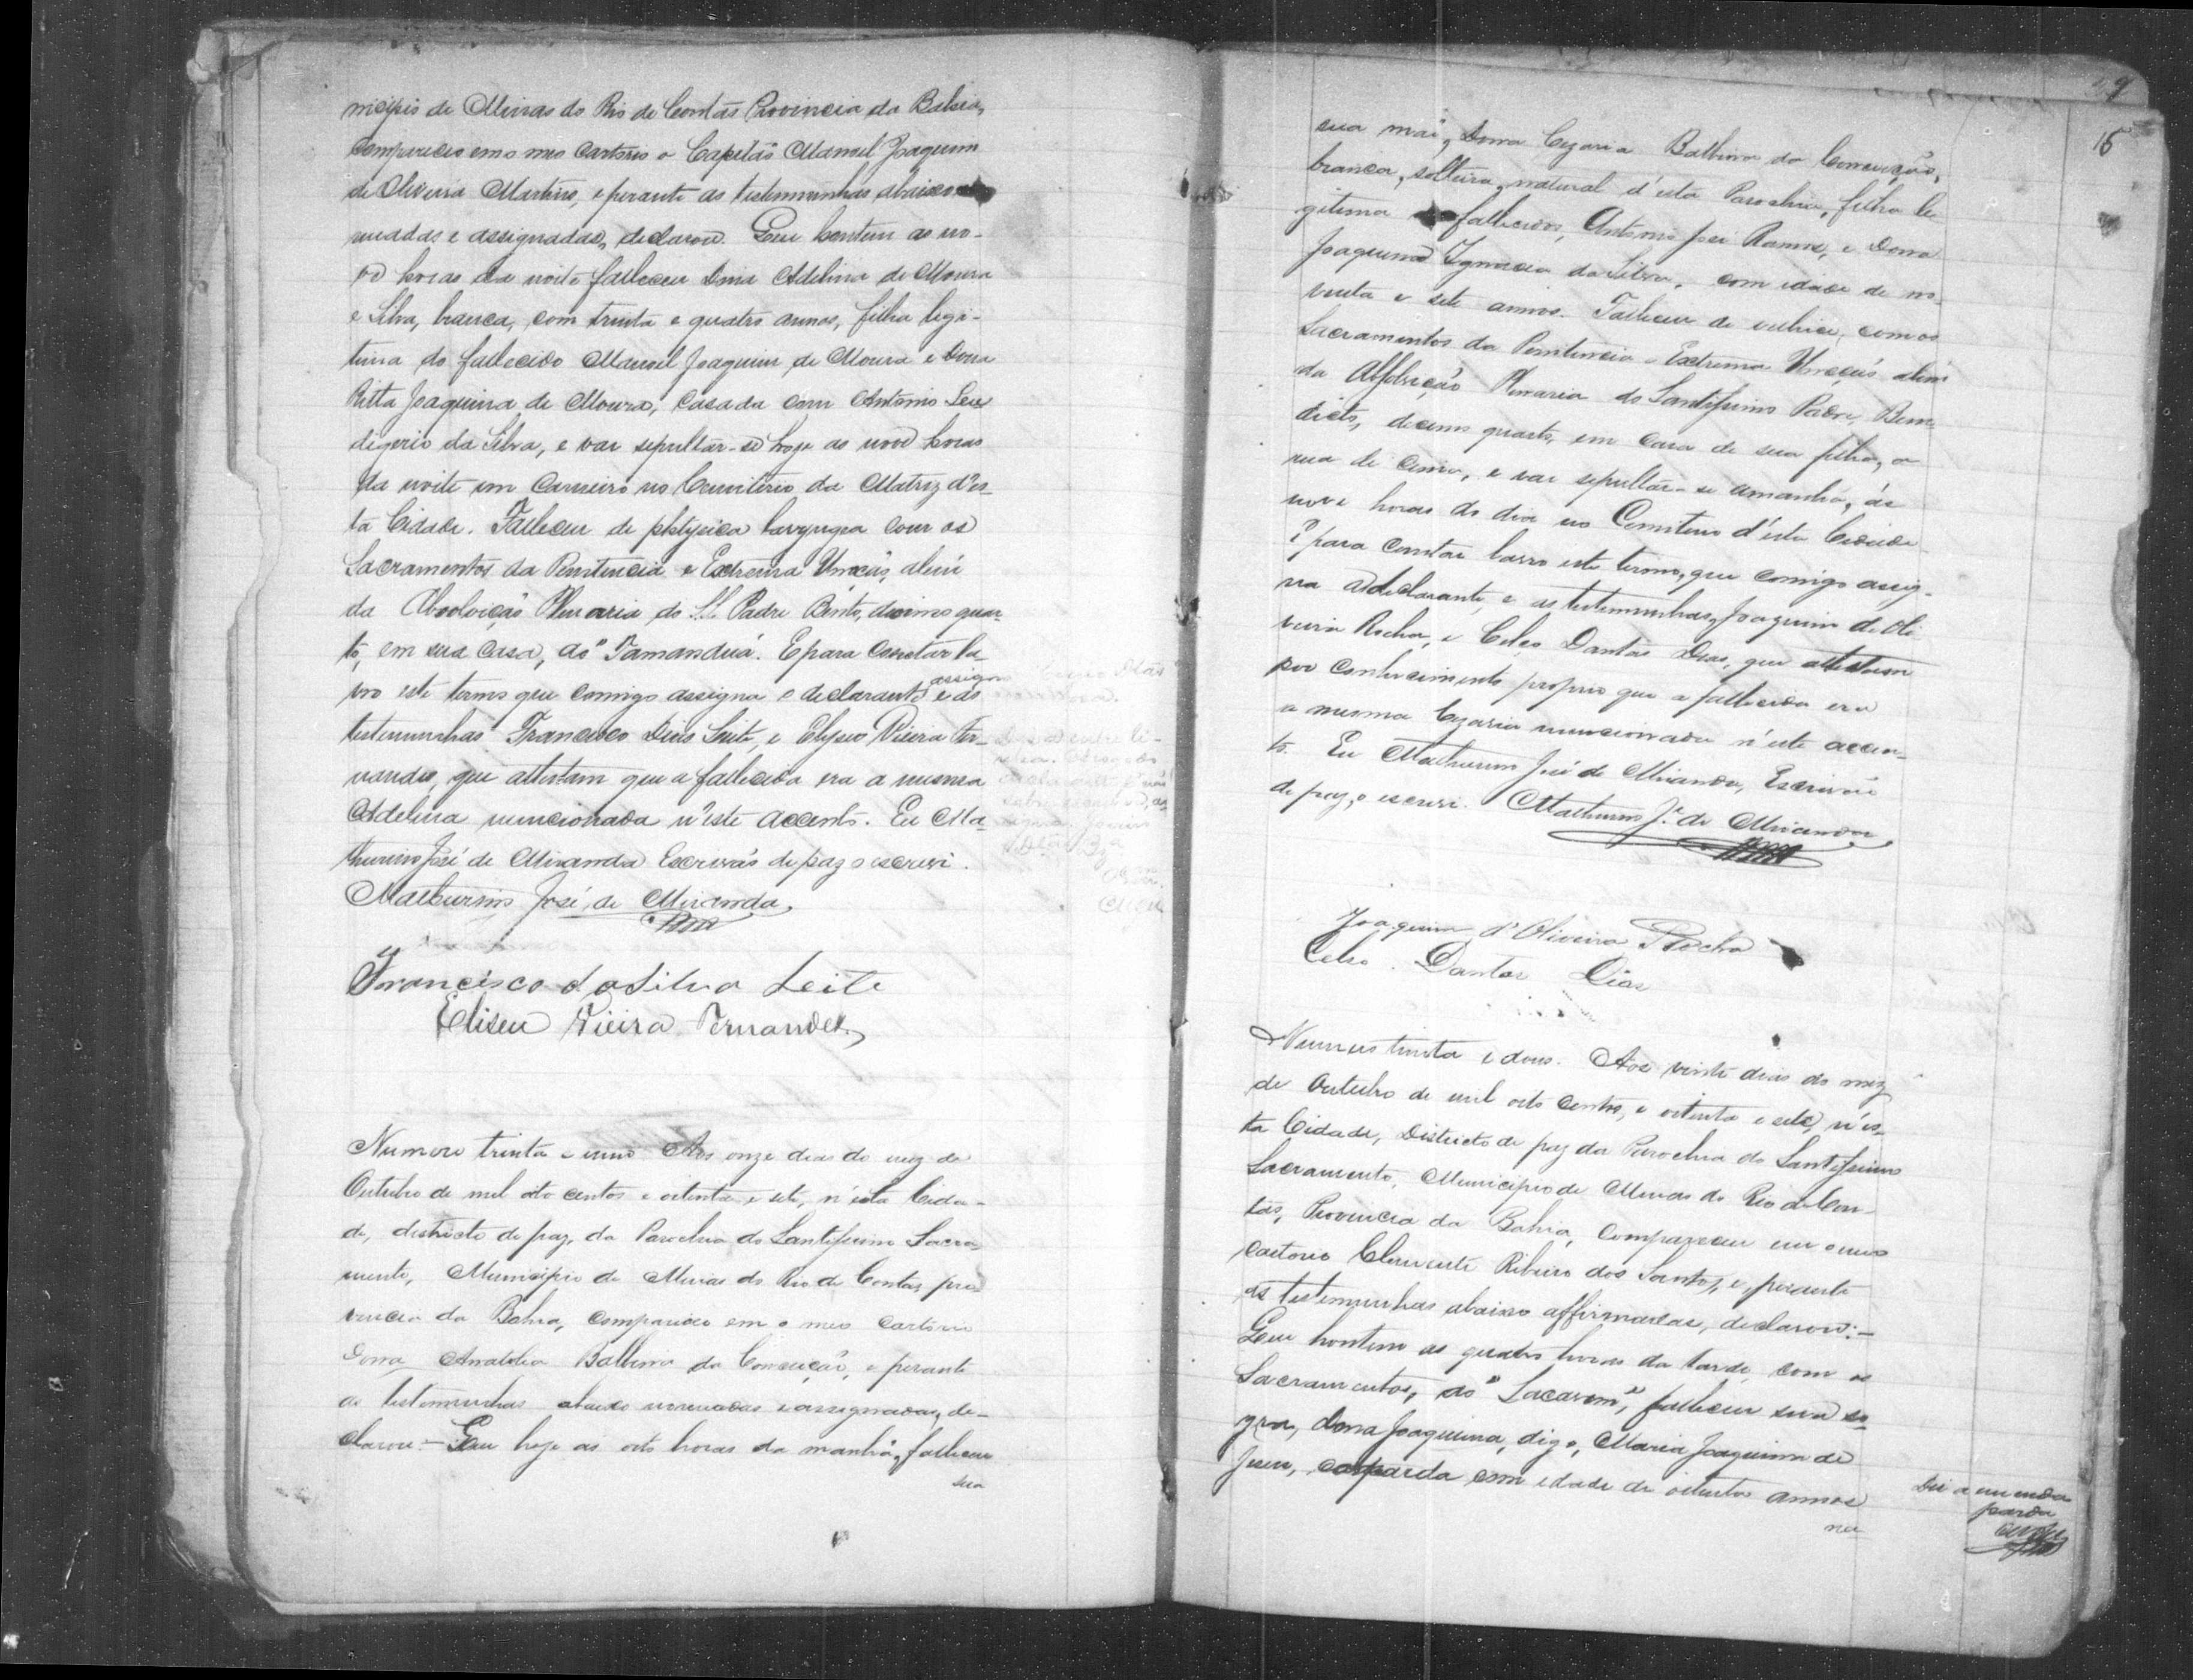 nicipio de Minas do Rio de Contas Provincia da Bahia,
compareceo em o meo Cartorio o Capitão Manoel Joaquim
de Oliveira Martins, e perante as testemunhas abaixo
meadas e assignadas, declarou. Que hontem as no-
ve horas da noite falleceu Dona Adelina de Moura
e Silva, branca, com trinta e quatro annos, filha legi-
tima do fallecido Manoel Joaquim de Moura e Dona
Ritta Joaquina de Moura, casada com Antonio Leu
digerio da Silva, e vai sepultar-se hoje as nove horas
da noite em Carneiro no Cemiterio da Matriz d'es-
ta Cidade. Falleceu de phtysica laryngea com os
Sacramentos da Penitencia e Extrema Uncção, alem
da Absolvição Plenaria do SS. Padre Bento, decimo quar-
to, em sua casa, do "Tamanduá. E para constar la-
vro este termo que comigo assigna o declarante e as
assigna
testemunhas Francisco Dias Leite, e Elyseo Vieira Fer-
nandes, que attestam que a fallecida era a mesma
Adelina mencionada n'este accento. Eu Ma-
thurino José de Miranda Escrivão de paz o escrevi.
Mathurino José de Miranda
Francisco da Silva Leite
Eliseu Vieira Fernandes
Numero trinta e um. Aos onze dias do mez de
Outubro de mil oito centos e oitenta e sete, n'esta Cida-
de, districto de paz, da Parochia do Santissimo Sacra-
mento, Municipio de Minas do Rio de Contas, pro-
vincia da Bahia, compareceo em o meo Cartorio
Dona Anatolia Balbina da Conceição, e perante
as testemunhas abaixo nomeadas e assignadas, de-
clarou - Que hoje as oito horas da manhã, falleceu
sua
15
sua mãi, Dona Cezaria Balbina da Conceição,
branca, solteira, natural d'esta Parochia, filha le
gitima fallecidos, Antonio José Ramos, e Dona
Joaquina Ignacia da Silva, com idade de no-
venta e sete annos. Falleceu de velhice, com os
Sacramentos da Penitencia e Extrema Uncção alem
da Absolvição Plenaria do Santissimo Padre Bene
dicto, decimo quarto, em casa de sua filha, a
rua de Cima, e vai sepultar-se amanhã, ás
nove horas do dia no Cemiterio d'esta Cidade
E para constar lavro este termo, que comigo assig-
na a declarante, e as testemunhas, Joaquim de Oli
veira Rocha, e Celso Dantas Dias, que attestam
por conhecimento proprio que a fallecida era
a mesma Cezaria mencionada n'este accen-
to. Eu Mathurino José de Miranda, Escrivão
de paz, o escrevi. Mathurino Jé. de Miranda
Joaquim d'Oliveira Rocha
Celso Dantas Dias
Numero trinta e dous. Aos vinte dias do mez
de Outubro de mil oito centos, e oitenta e sete, n'es-
ta Cidade, Districto de paz da Parochia do Santissimo
Sacramento, Municipio de Minas do Rio de Con-
tas, Provincia da Bahia, compareceu em o meo
Cartorio Clemente Ribeiro dos Santos, e, perante
as testemunhas abaixo affirmadas, declarou: -
Que hontem as quatro horas da tarde, com os
Sacramentos, do "Lacarem", falleceu sua so-
gra, Dona Joaquina, digo, Maria Joaquina de
Jesus, parda com idade de oitenta annos
na
Diz a emenda
parda